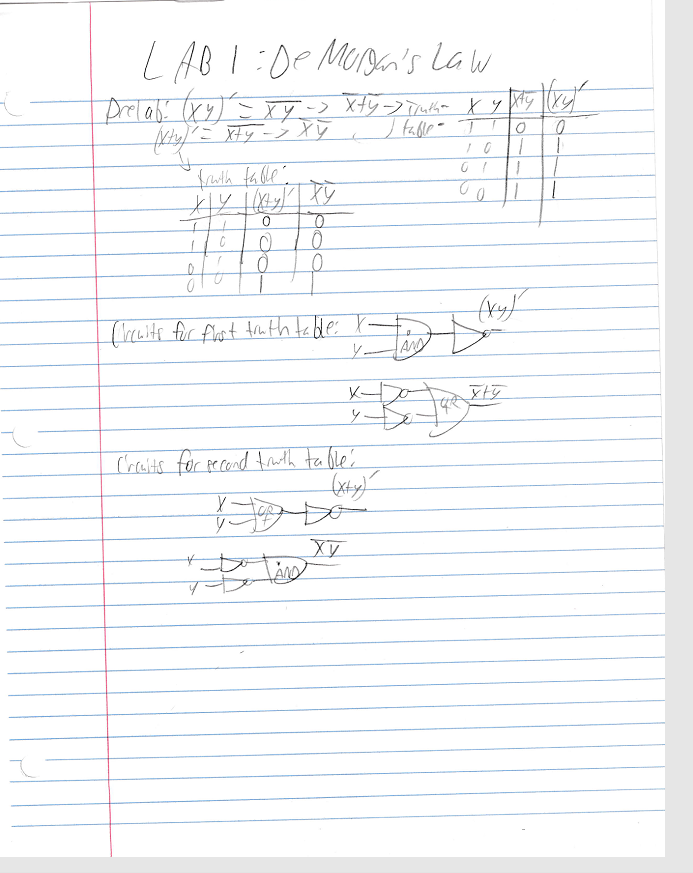 LAB 1: De Morgan's Law
Prelab: (xy)' = x̅y̅ -> x̅+y̅ -> Truth- X Y x̅+y̅ (xy)'
(x+y)' = x̅+̅y̅ -> x̅ y̅ , table- 1 1 0 0
1 0 1 1
0 1 1 1
0 0 1 1
truth table:
X Y (x+y)' x̅ y̅
1 1 0 0
1 0 0 0
0 1 0 0
0 0 1 1
Circuits for first truth table: X Y AND (xy)'
X Y OR x̅+y̅
Circuits for second truth table:
X Y OR (x+y)'
X Y AND x̅ y̅